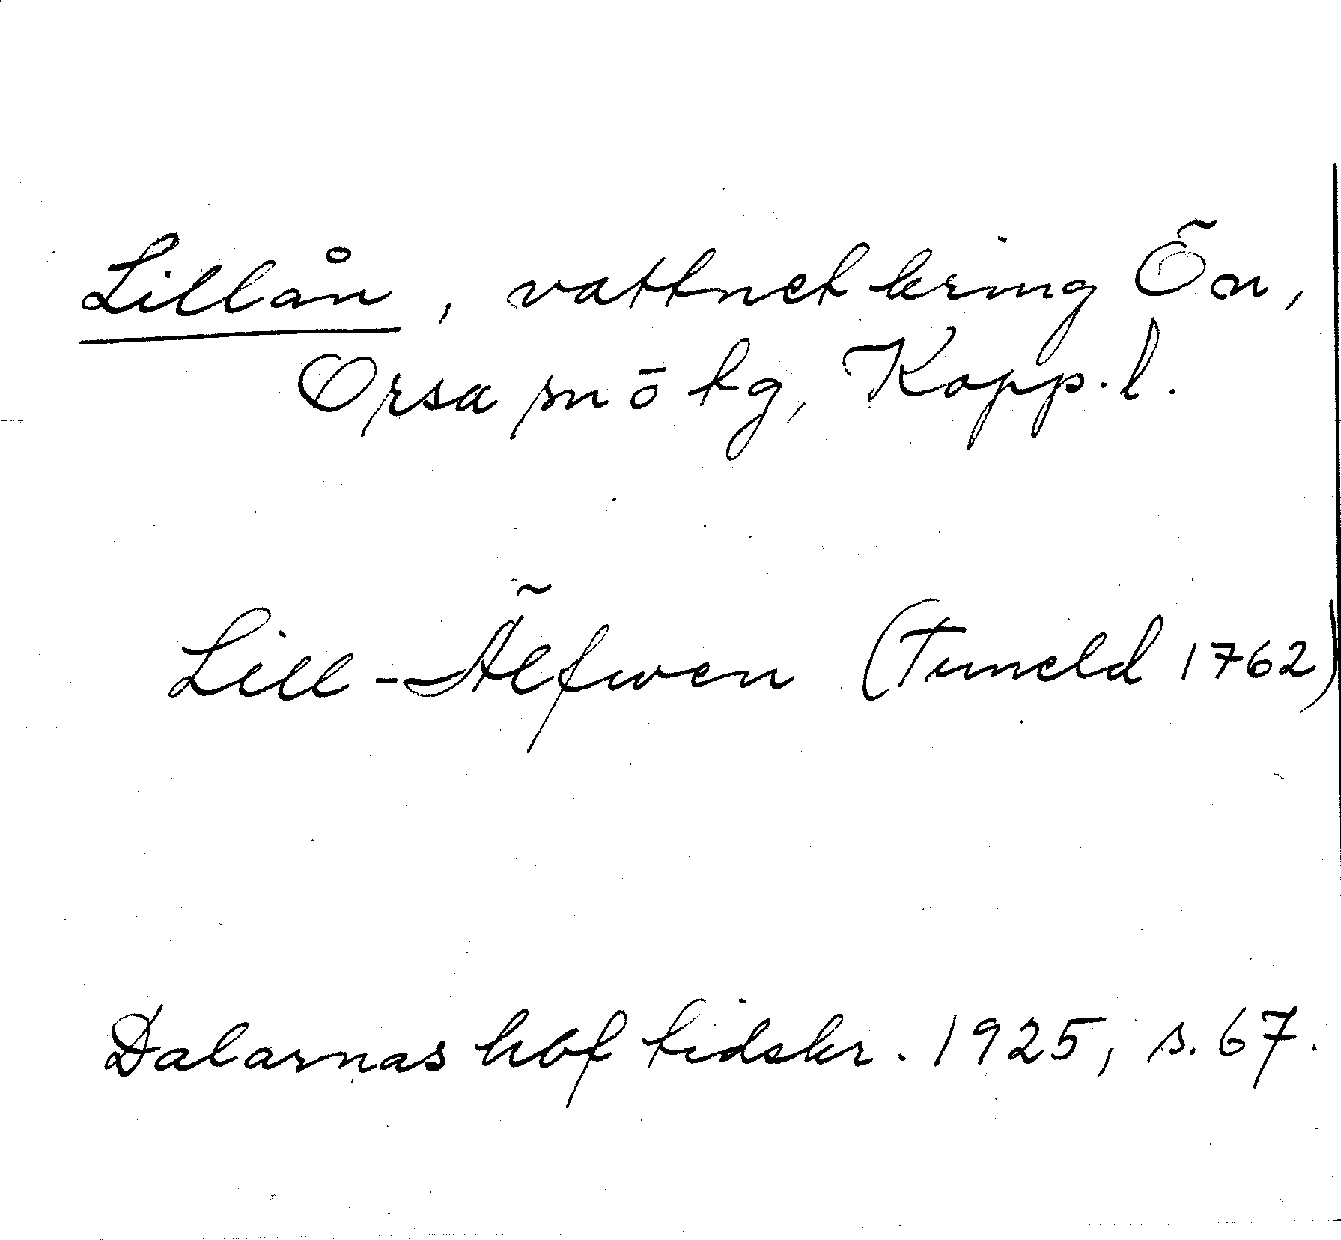 Lillån, vattnet kring Ön,
Orsa sn o tg, Kopp.l.
Lill-Älfwen (Tuneld 1762)
Dalarnas hbf tidskr. 1925, s. 67.